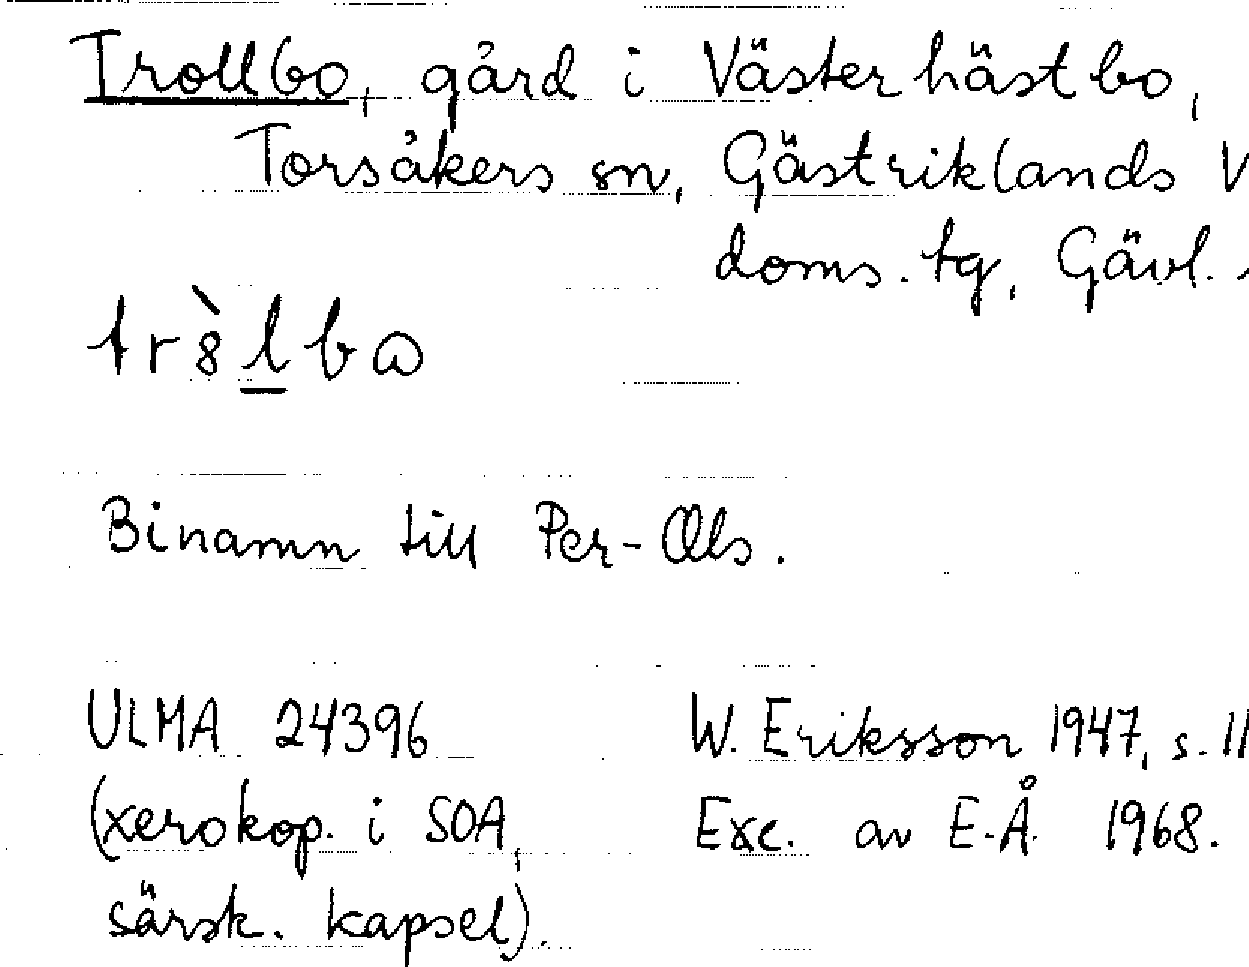 Trollbo, gård i Västerhästbo,
Torsåkers sn, Gästriklands V
doms. tg, Gävl.
tr8̀lba
Binamn till Per-Ols.
ULMA 24396 W. Eriksson 1947, s. 11
(xerokop. i SOA, Exc. av E-Å. 1968.
särsk. kapsel).